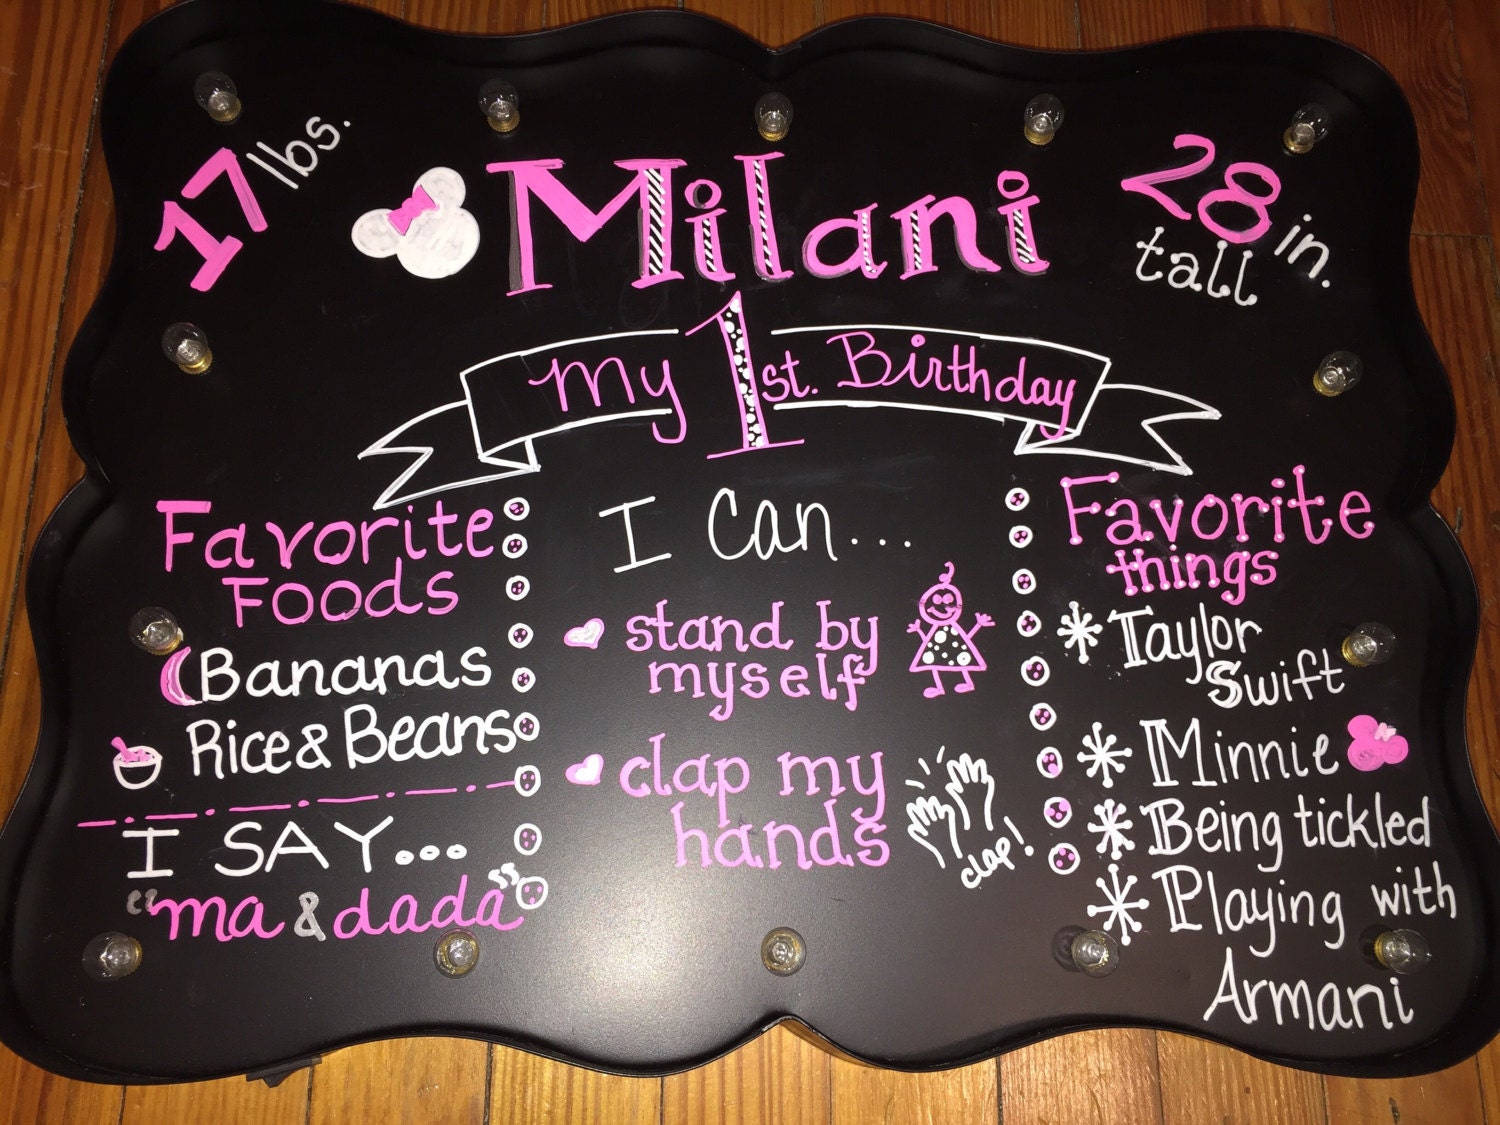 17 lbs.
Milani
28 in.
tall
My 1st. Birthday
Favorite
Foods
Bananas
Rice & Beans
I SAY...
"ma & dada"
I Can...
stand by
myself
clap my
hands
clap!
Favorite
things
Taylor
Swift
Minnie
Being tickled
Playing with
Armani